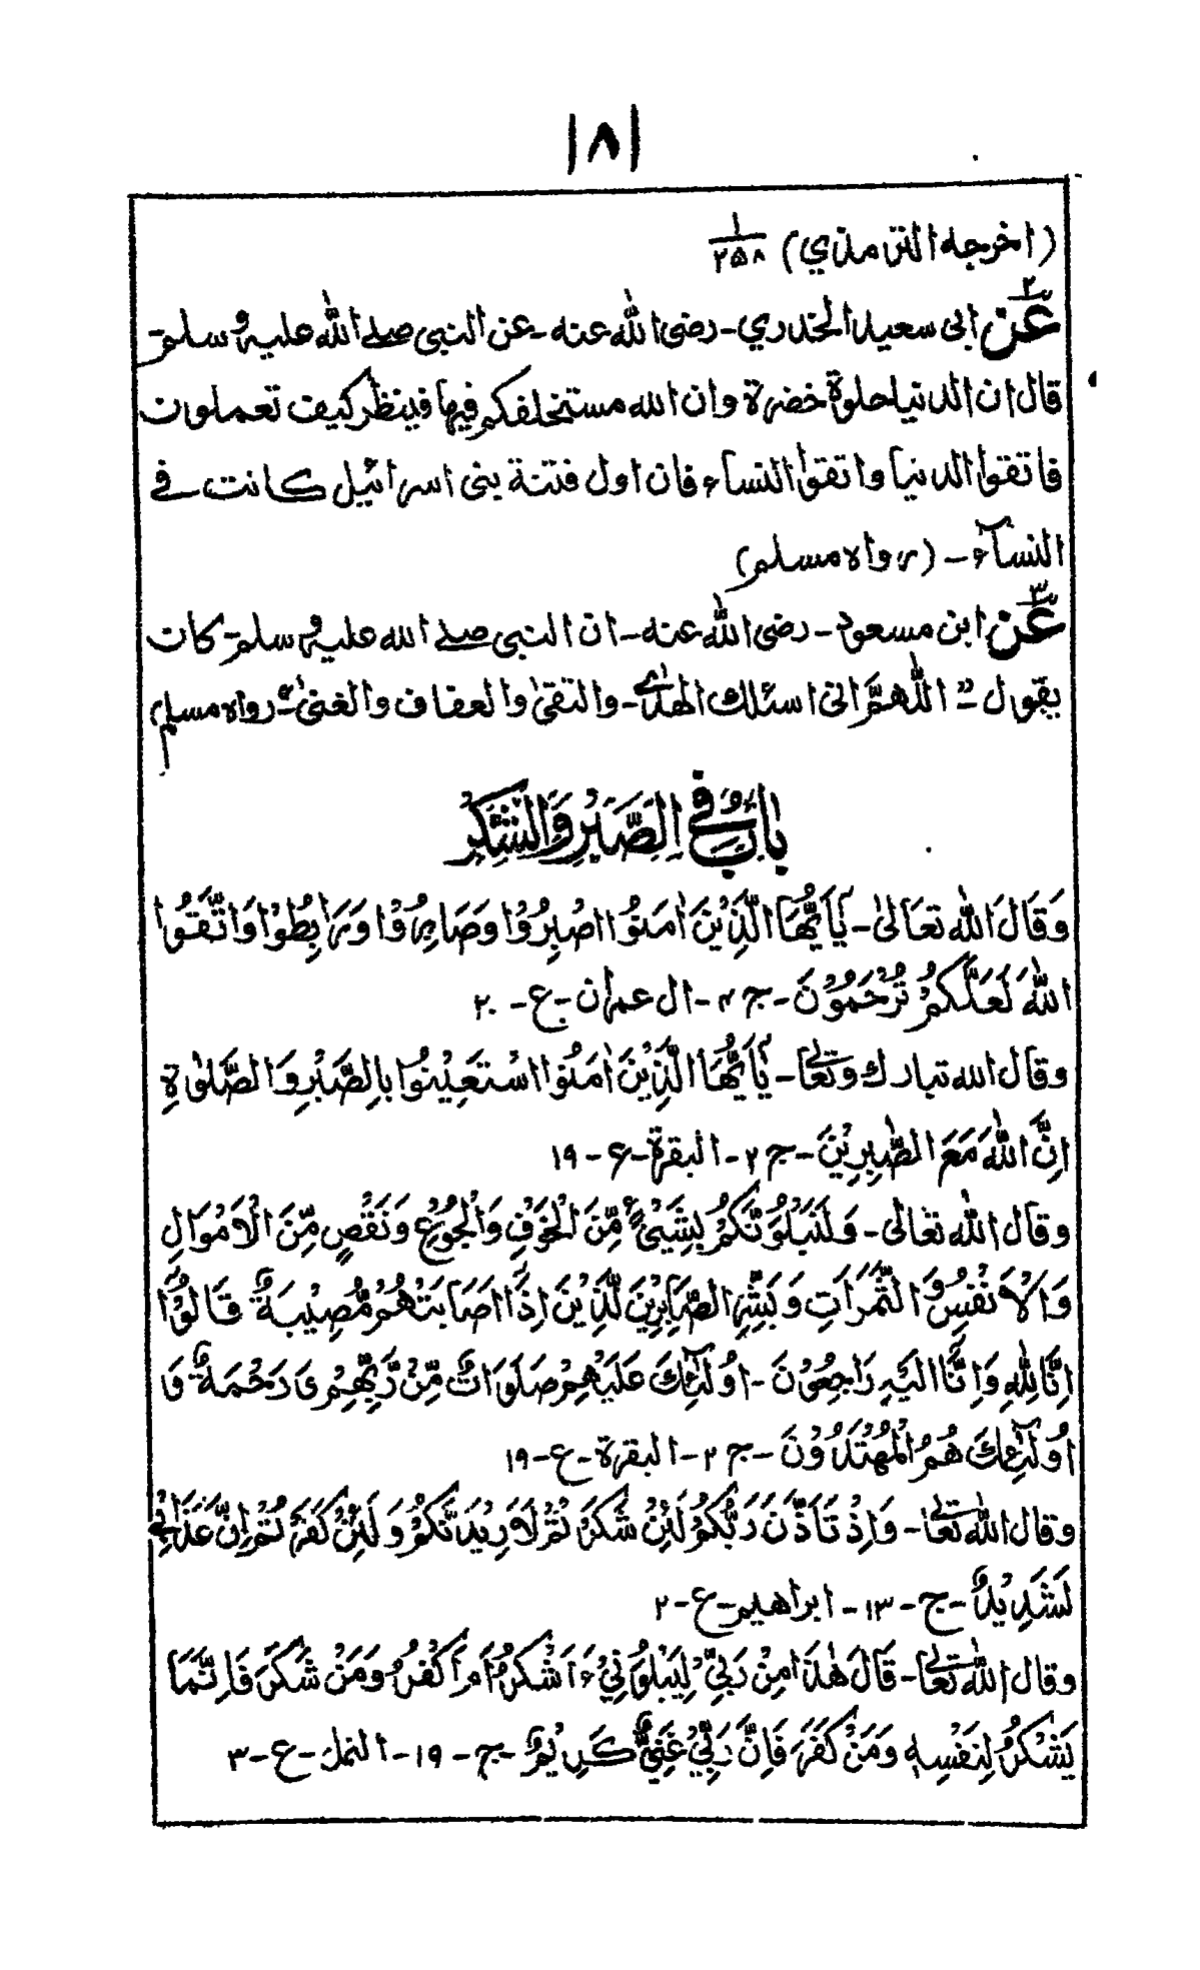 ١٨١
(اخرجه الترمذي) ١/٢٥٨
٢ عن ابى سعيد الخدري - رضى الله عنه - عن النبى صلے الله عليه و سلم -
قال ان الدنيا حلوة خضرة وان الله مستخلفكم فيها فينظر كيف تعملون
فاتقوا الدنيا واتقوا النساء فان اول فتنة بنى اسرائيل كانت فے
النسآء - (رواه مسلم)
٣ عن ابن مسعود - رضى الله عنه - ان النبى صلے الله عليه و سلم - كان
يقول - " اللّٰهمَّ انى اسئلك الهدٰے - والتقىٰ والعفاف والغنىٰ" - رواه مسلم
بَابٌ فِي الصَّبْرِ وَالشُّكْرِ
وَقَالَ اللّٰه تعَالىٰ - يٰۤاَيُّهَا الَّذِيْنَ اٰمَنُوا اصْبِرُوْا وَصَابِرُوْا وَرَابِطُوْا وَاتَّقُوا
اللّٰهَ لَعَلَّكُمْ تُرْحَمُوْنَ - ج ٤ - ال عمران - ع - ٢٠
وقال الله تبارك وتعالےٰ - يٰۤاَيُّهَا الَّذِيْنَ اٰمَنُوا اسْتَعِيْنُوا بِالصَّبْرِ وَالصَّلوٰةِ
اِنَّ اللّٰهَ مَعَ الصّٰبِرِيْنَ - ج ٢ - البقرة - ع - ١٩
وقال اللّٰه تعالىٰ - وَلَنَبْلُوَنَّكُمْ بِشَيْئٍ مِّنَ الْخَوْفِ وَالْجُوْعِ وَنَقْصٍ مِّنَ الْاَمْوَالِ
وَالْاَنْفُسِ وَالثَّمَرَاتِ وَبَشِّرِ الصَّابِرِيْنَ الَّذِيْنَ اِذَا اصَابَتْهُمْ مُّصِيْبَةٌ قَالُوْا
اِنَّا لِلّٰهِ وَاِنَّا اِلَيْهِ رَاجِعُوْنَ - اُولٰٓئِكَ عَلَيْهِمْ صَلَوَاتٌ مِّنْ رَّبِّهِمْ وَرَحْمَةٌ وَ
اُولٰٓئِكَ هُمُ الْمُهْتَدُوْنَ - ج ٢ - البقرة - ع - ١٩
وقال اللّٰه تعالےٰ - وَاِذْ تَاَذَّنَ رَبُّكُمْ لَئِنْ شَكَرْتُمْ لَاَزِيْدَنَّكُمْ وَلَئِنْ كَفَرْتُمْ اِنَّ عَذَابِىْ
لَشَدِيْدٌ - ج - ١٣ - ابراهيم - ع - ٢
وقال اللّٰه تعالےٰ - قَالَ هٰذَا مِنْ رَبِّيْ لِيَبْلُوَنِيْ ءَاَشْكُرُ اَمْ اَكْفُرُ وَمَنْ شَكَرَ فَاِنَّمَا
يَشْكُرُ لِنَفْسِهٖ وَمَنْ كَفَرَ فَاِنَّ رَبِّيْ غَنِيٌّ كَرِيْمٌ - ج - ١٩ - النمل - ع - ٣